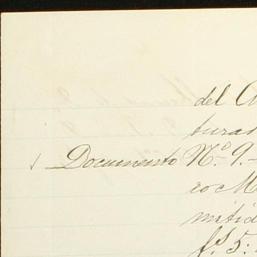 del A
buras
Documento Nº 9.-
co M
mitid
fs 5: